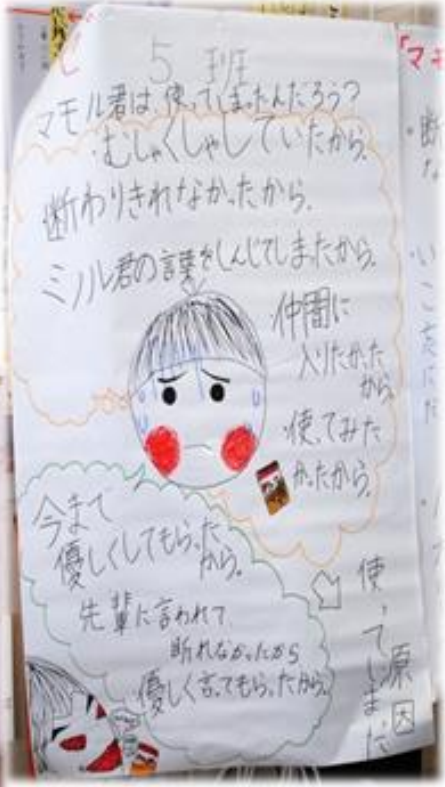 5班
マモル君は、使ってしまったんだろう?
・むしゃくしゃしていたから。
断わりきれなかったから。
ミノル君の言葉をしんじてしまったから。
仲間に
入りたかった
から。
・使ってみた
かったから。
今まで
優しくしてもらった
から。
先輩に言われて
断れなかったから
優しく言ってもらったから。
使ってしまった
原因
「マモ
・断